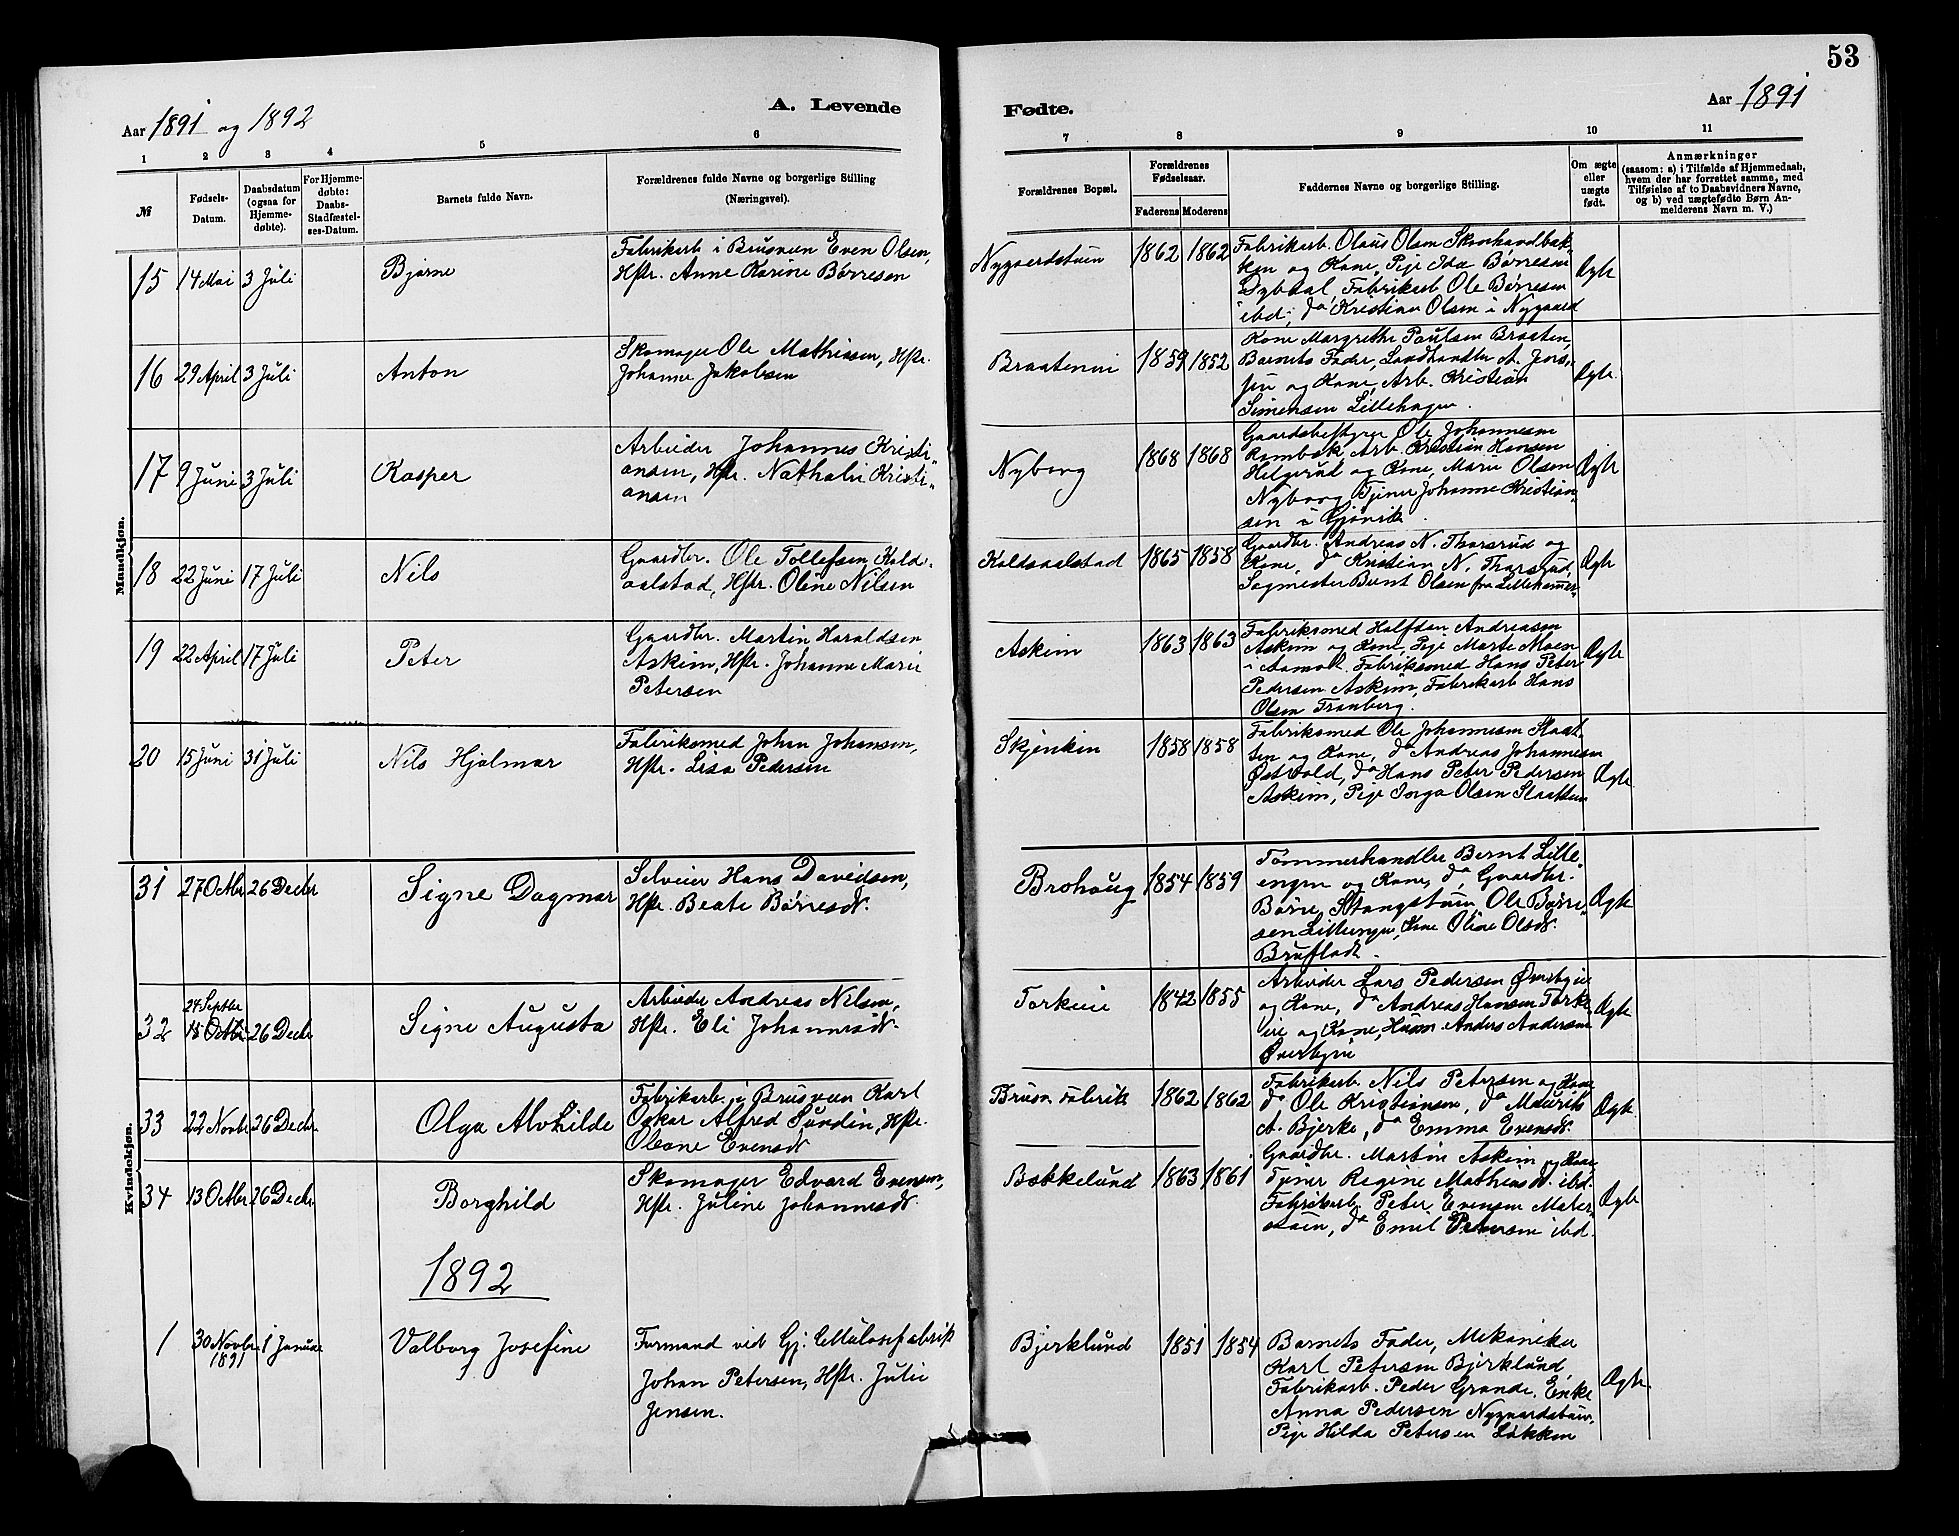 53
Aar 1891 og 1892
A. Levende
Fødte.
Aar 1891
1
2
3
4
5
6
7
8
9
10
11
№
Fødsels-
Datum.
Daabsdatum
(ogsaa for
Hjemme-
døbte).
For Hjemme-
døbte:
Daabs-
Stadfæstel-
ses-Datum.
Barnets fulde Navn.
Forældrenes fulde Navne og borgerlige Stilling
(Næringsvei).
Forældrenes Bopæl.
Forældrenes
Fødselsaar.
Faderens
Moderens
Faddernes Navne og borgerlige Stilling.
Om ægte
eller
uægte
født.
Anmærkninger
(saasom: a) i Tilfælde af Hjemmedaab,
hvem der har forrettet samme, med
Tilføielse af to Daabsvidners Navne,
og b) ved uægtefødte Børn An-
melderens Navn m. V.)
Mandkjøn.
15 14 Mai 3 Juli
Bjarne
Fabrikarb. i Brusveen Even Olsen,
Hstr. Anne Karine Børresen
Nygaardstuen
1862 1862
Fabrikarb. Olaus Olsen Skonhandbak-
ken og Kone, Pige Ida Børresen
Dybdal, Fabrikarb Ole Børresen
ibd, do Kristian Olsen i Nygaard
Ægte
16 29 April 3 Juli
Anton
Skomager Ole Mathiasen, Hstr.
Johanne Jakobsen
Braatenni
1859 1852
Kone Margrethe Paulsen Braaten,
Barnets Fader, Landhandler A. Jens,
sen og Kone, Arb. Kristian
Simensen Lillehagen.
Ægte.
17 9 Juni 3 Juli
Kasper
Arbeider Johannes Kristi-
ansen, Hstr. Nathalie Kristi-
ansen
Nyborg
1868 1868
Gaardsbestyrer Ole Johannesen
Rambæk, Arb. Kristian Hansen
Helgerud og Kone, Marie Olsen
Nyborg, Tjener Johanne Kristian-
sen i Gjøvik.
Ægte
18 22 Juni 17 Juli
Nils
Gaardbr. Ole Tollefsen Kold-
aalstad, Hstr. Oline Nilsen
Koldaalstad
1865 1858
Gaardbr. Andreas N. Tharsrud og
Kone, do Kristian N. Tharsrud,
Sagmester Bernt Olsen fra Lillehammer.
Ægte
19 22 April 17 Juli
Peter
Gaardbr. Martin Haraldsen
Askim, Hstr. Johanne Marie
Petersen
Askim
1863 1863
Fabriksmed Halfdan Andreasen
Askim og Kone, Pige Marte Moen
i Aamodt. Fabriksmed Hans Peter
Pedersen Askim, Fabrikarb Hans
Olsen Tranberg.
Ægte
20 15 Juni 31 Juli
Nils Hjalmar
Fabriksmed Johan Johansen,
Hstr. Lisa Pedersen
Skjenkin
1858 1858
Fabriksmed Ole Johannesen Slaat-
ten og Kone, do Andreas Johannesen
Østvold, do Hans Peter Pedersen
Askim, Pige Inga Olsen Slaatten
Ægte
Kvindekjøn.
31 27 Octbr 26 Decbr
Signe Dagmar
Selveier Hans Davidsen,
Hstr. Beate Børresdr.
Brohaug
1854 1859
Tømmerhandler Bernt Lille-
engen og Kone, do, Gaardbr.
Børre Stangstuen, Ole Børre-
sen Lilleengen, Kone Oline Olsdr.
Brufladt.
Ægte
24 Septbr
32 15 Octbr 26 Decbr
Signe Augusta
Arbeider Andreas Nilsen,
Hstr. Eli Johannesdr.
Torkeie
1842 1855
Arbeider Lars Pedersen Øverbyeie
og Kone, do Andreas Hansen Tork-
eie og Kone, Huusm. Anders Andersen
Øverbyeie
Ægte
33 22 Novbr 26 Decbr.
Olga Alvhilde
Fabrikarb. i Brusveen Karl
Oskar Alfred Sundin, Hstr.
Oleane Evensdr
Brusv fabrik
1862 1862
Fabrikarb Nils Petersen og Kone
do Ole Kristiansen, do Maurits
A. Bjerke, do Emma Evensdr.
Ægte.
34 13 Octbr 26 Decbr.
Borghild
Skomager Edvard Evensen,
Hstr. Juline Johannesdr.
Bækkelund
1863 1861
Gaardbr. Martin Askim og Kone
Tjener Regine Mathiasdr. ibd.
Fabrikarb. Peter Evensen Mater-
stuen, do Emil Petersen ibd.
Ægte
1892
1 30 Novbr. 1 Januar
1891
Valborg Josefine
Formand ved Gj. Cellulosefabrik
Johan Petersen, Hstr. Julie
Jensen.
Bjerklund
1851 1854
Barnets Fader, Mekaniker
Karl Petersen Bjerklund,
Fabrikarb. Peder Grande, Enke
Anna Pedersen Nygaardstuen,
Pige Hilda Petersen Løkken
Ægte.